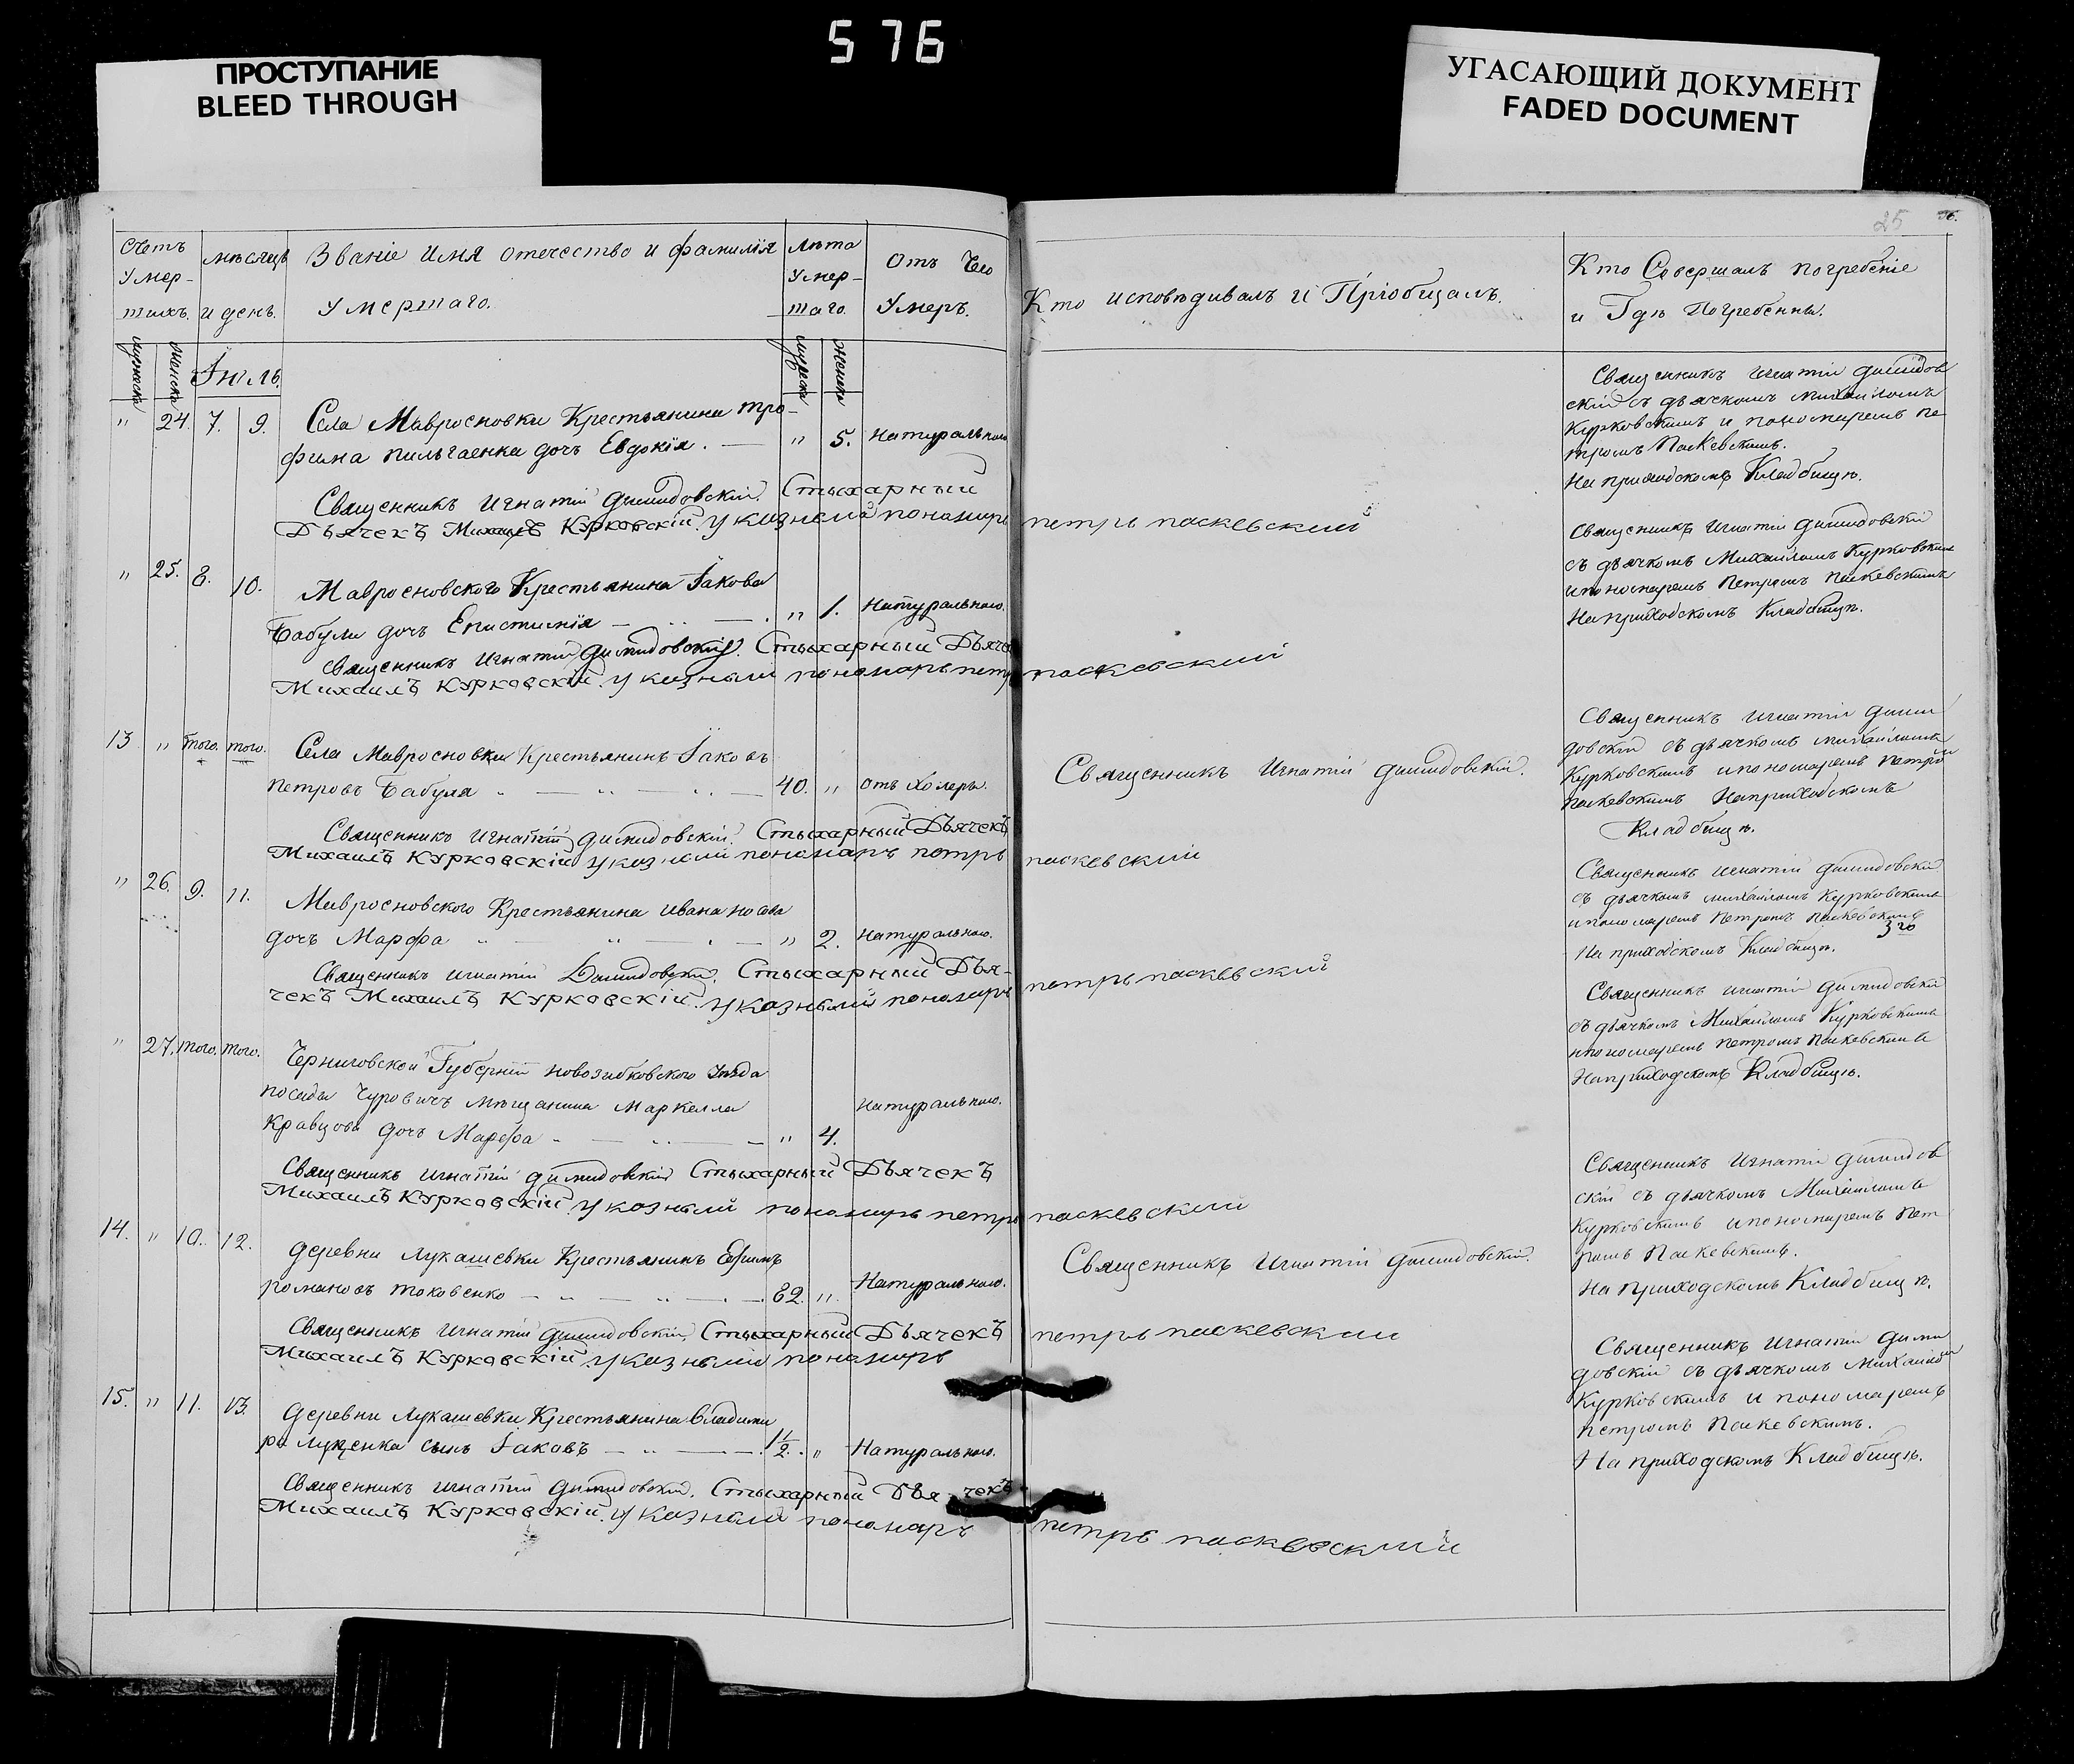 576
ПРОСТУПАНИЕ
BLEED THROUGH
УГАСАЮЩИЙ ДОКУМЕНТ
FADED DOCUMENT
25
Счетъ
Умер-
шихъ.
мѣсяцъ
и день.
Званіе имя отечество и фамилія
Умершаго.
Лѣта
Умер-
шаго.
Отъ Чего
Умеръ.
Кто исповѣдивалъ и Пріобщалъ.
Кто Совершалъ погребеніе
и Гдѣ Погребенны.
мужеска
женска
Іюль.
мужеска
женска
" 24. 7. 9. Села Мавросновки Крестьянина Тро-
фима Пильгаенка дочь Евдокія. — " 5. Натуральною
Священникъ Игнатій Димидовскій. Стыхарный
Дьячекъ Михаилъ Курковскій. Указный пономарь петръ паскевский
Священникъ Игнатій Димидов
скій съ дьячкомъ Михаиломъ
Курковскимъ и пономаремъ Пе
тромъ Паскевскимъ.
На приходскомъ Кладбищѣ.
" 25. 8. 10. Мавросновского Крестьянина Іакова
Бабули дочь Епистимія — " 1. Натуральною.
Священникъ Игнатій Димидовскій. Стыхарный Дьяче
Михаилъ Курковскій. Указный пономарь петръ паскевский
Священникъ Игнатій Димидовскій
съ дьячкомъ Михаиломъ Курковскимъ
и пономаремъ Петромъ Паскевскимъ
На приходскомъ Кладбищѣ.
13 " Того. того. Села Мавросновки Крестьянинъ Іаковъ
Петровъ Бабуля — 40. " отъ Холеры.
Священникъ Игнатій Димидовскій.
Священникъ Игнатій Димидовскій. Стыхарный Дьячекъ
Михаилъ Курковскій указный пономарь петръ паскевский
Священникъ Игнатій Дими
довскій съ дьячкомъ Михаиломъ
Курковскимъ и пономаремъ Петромъ
Паскевскимъ На приходскомъ
Кладбищѣ.
" 26. 9. 11. Мавросновского Крестьянина Ивана Носова
дочь Марфа — " 2. Натуральною.
Священникъ Игнатій Димидовскій. Стыхарный Дья-
чекъ Михаилъ Курковскій. Указный пономарь петръ паскевский
Священникъ Игнатій Димидовскій
съ дьячкомъ Михаиломъ Курковскимъ
и пономаремъ Петромъ Паскевскимъ
На приходскомъ Кладбищѣ.
" 27. того. того. Черниговской Губерніи Новозибковского Уѣзда
посада Чуровичъ мѣщанина Маркелла
Кравцова дочь Марфа — " 4. Натуральною.
Священникъ Игнатій Димидовскій Стыхарный Дьячекъ
Михаилъ Курковскій. Указный пономарь петръ паскевский
Священникъ Игнатій Димидовскій
съ дьячкомъ Михаиломъ Курковскимъ
и пономаремъ Петромъ Паскевскимъ
На приходскомъ Кладбищѣ.
14. " 10. 12. деревни Лукашевки Крестьянинъ Ефимъ
Романовъ Токовенко — 82. " Натуральною.
Священникъ Игнатій Димидовскій.
Священникъ Игнатій Димидовскій. Стыхарный Дьячекъ
Михаилъ Курковскій. Указный пономарь петръ паскевский
Священникъ Игнатій Димидов
скій съ дьячкомъ Михаиломъ
Курковскимъ и пономаремъ Пет
ромъ Паскевскимъ.
На приходскомъ Кладбищѣ.
15. " 11. 13. деревни Лукашевки Крестьянина Владими
ра Луценка сынъ Іаковъ — 1 1/2. " Натуральною.
Священникъ Игнатій Димидовскій. Стыхарный Дьячекъ
Михаилъ Курковскій. Указный пономарь петръ паскевский
Священникъ Игнатій Дими
довскій съ дьячкомъ Михаиломъ
Курковскимъ и пономаремъ
Петромъ Паскевскимъ.
На приходскомъ Кладбищѣ.